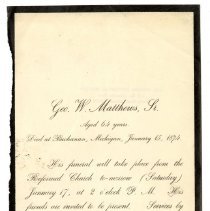 Geo. W. Matthews, Sr.
Aged 64 years.
Died at Buchanan, Michigan, January 15, 1874
His funeral will take place from the
Reformed Church to-morrow (Saturday)
January 17, at 2 o'clock P. M. His
friends are invited to be present. Services by